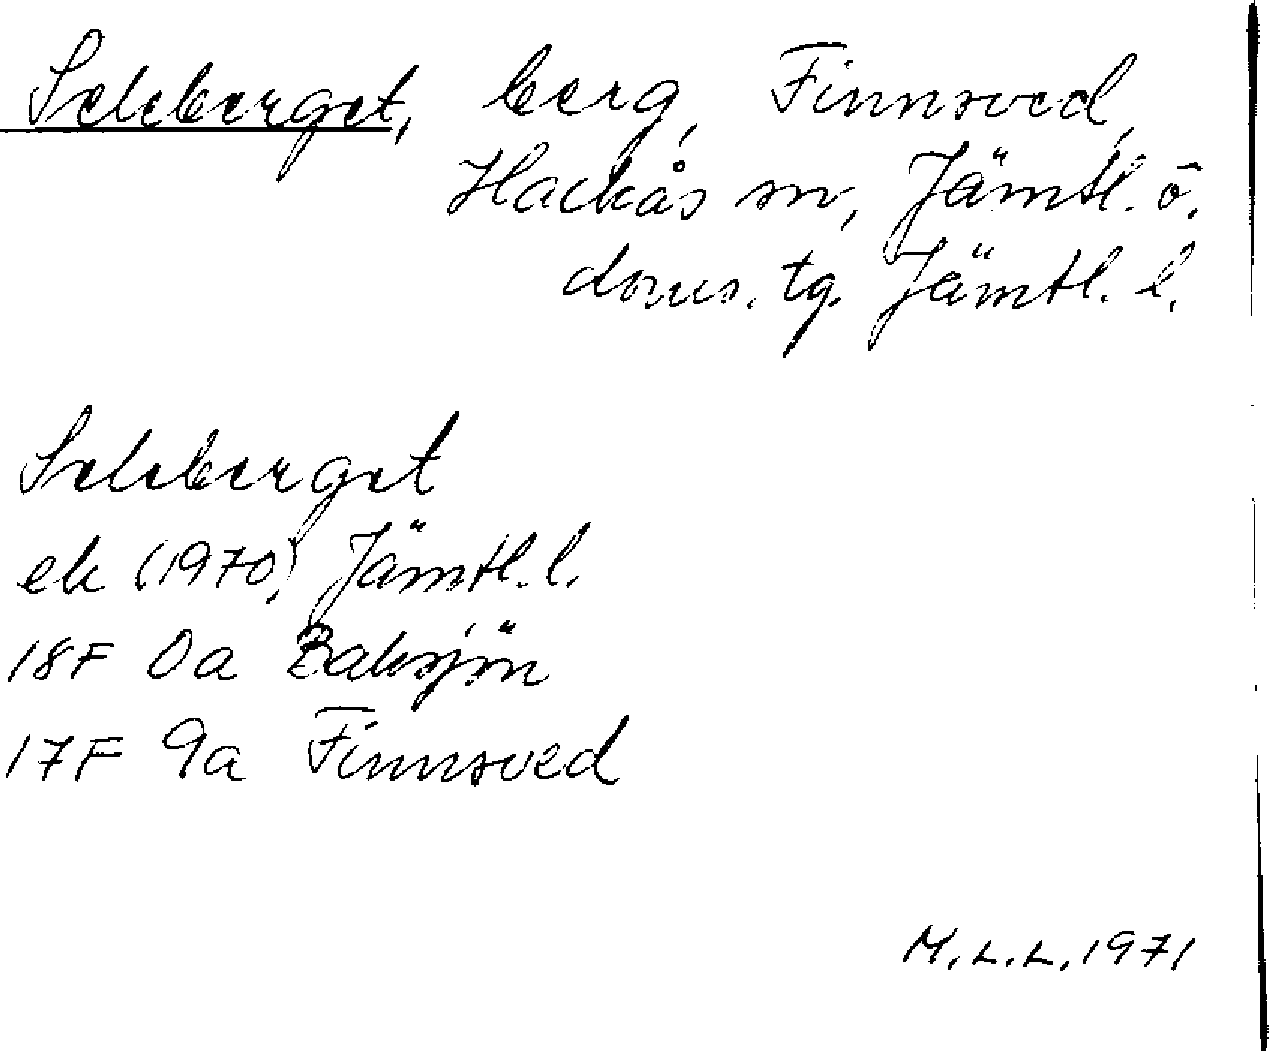 Seleberget, berg, Finnsved,
Hackås sn, Jämtl. ö.
doms. tg. Jämtl. l.
Seleberget
ek (1970) Jämtl. l.
18F 0a Baksjön
17F 9a Finnsved
M.L.L. 1971